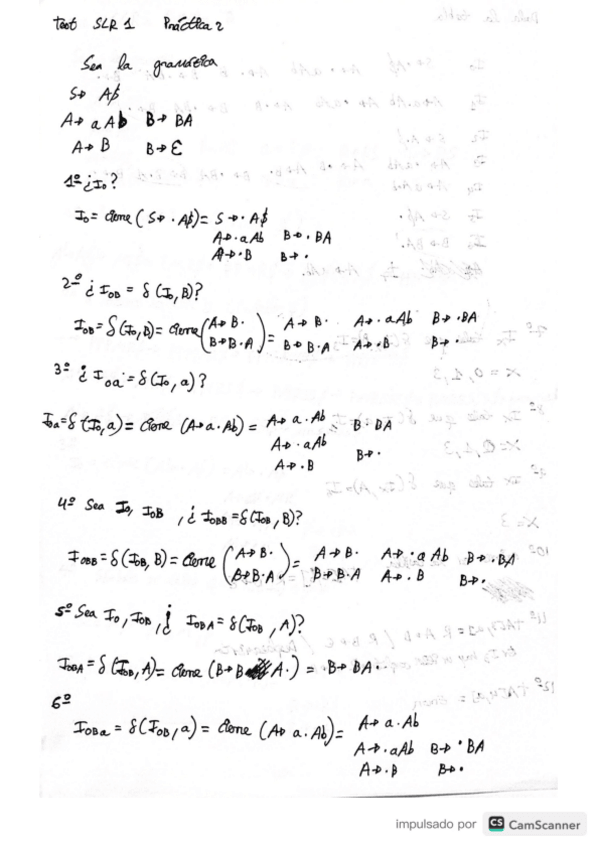 Test SLR 1 Práctica 2
Sea la gramática
S→ A$
A→ aAb B→ BA
A→ B B→ Ɛ
1º ¿I₀?
I₀ = cierre (S→ · A$) = S→ · A$
A→ · aAb B→ · BA
A→ · B B→ ·
2º ¿I₀B = δ(I₀, B)?
I₀B = δ(I₀, B) = cierre (A→ B· B→ B·A) = A→ B· A→ · aAb B→ · BA
B→ B·A A→ · B B→ ·
3º ¿I₀a = δ(I₀, a)?
I₀a = δ(I₀, a) = cierre (A→ a·Ab) = A→ a·Ab B→ ·BA
A→ · aAb
A→ · B B→ ·
4º Sea I₀, I₀B, ¿I₀BB = δ(I₀B, B)?
I₀BB = δ(I₀B, B) = cierre (A→ B· B→ B·A) = A→ B· A→ · aAb B→ · BA
B→ B·A A→ · B B→ ·
5º Sea I₀, I₀B, ¿ I₀BA = δ(I₀B, A)?
I₀BA = δ(I₀B, A) = cierre (B→ B A·) = B→ BA·
6º
I₀Ba = δ(I₀B, a) = cierre (A→ a·Ab) = A→ a·Ab
A→ · aAb B→ · BA
A→ · B B→ ·
impulsado por CS CamScanner